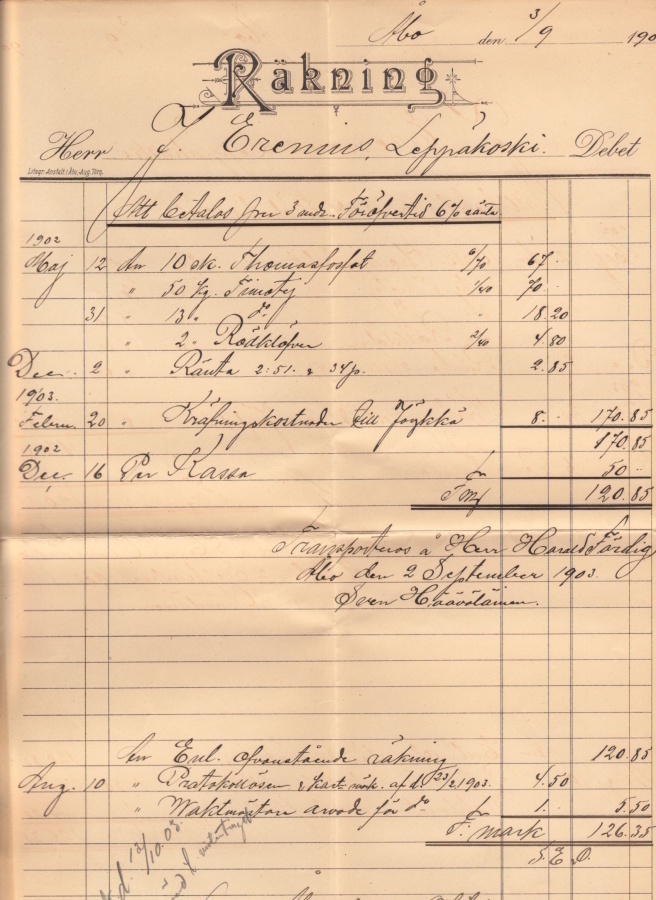 Åbo den 3/9 190
Räkning
Herr J. Erenius, Leppäkoski. Debet
Litogr. Anstalt i Åbo, Aug. Törn.
Att betalas före 3 mdr. Föröfvertid 6% ränta
1902
Maj 12 An 10 sk. Thomasfosfat 6/70 67 -
" 50 kg. Timotej 1/40 70 -
31 " 13 " do " 18.20
" 2 " Rödklöfver 2/40 4.80
Dec. 2 " Ränta 2:51. & 34 p. 2.85
1903
Febru. 20 " Kräfningskostnader till Jöykkä 8. - 170.85
170.85
1902
Dec. 16 Per Kassa 50 -
Fmf 120.85
Transporteras å Herr Harald Färdig
Åbo den 2 September 1903.
Sven
An Enl. ofvanstående räkning 120.85
Aug. 10 " Protokollösen & af d. 23/2 1903. 4.50
" Waktmästar arvode för do 1. - 5.50
F: mark 126.35
S. E. O.
d. 12/10.03.